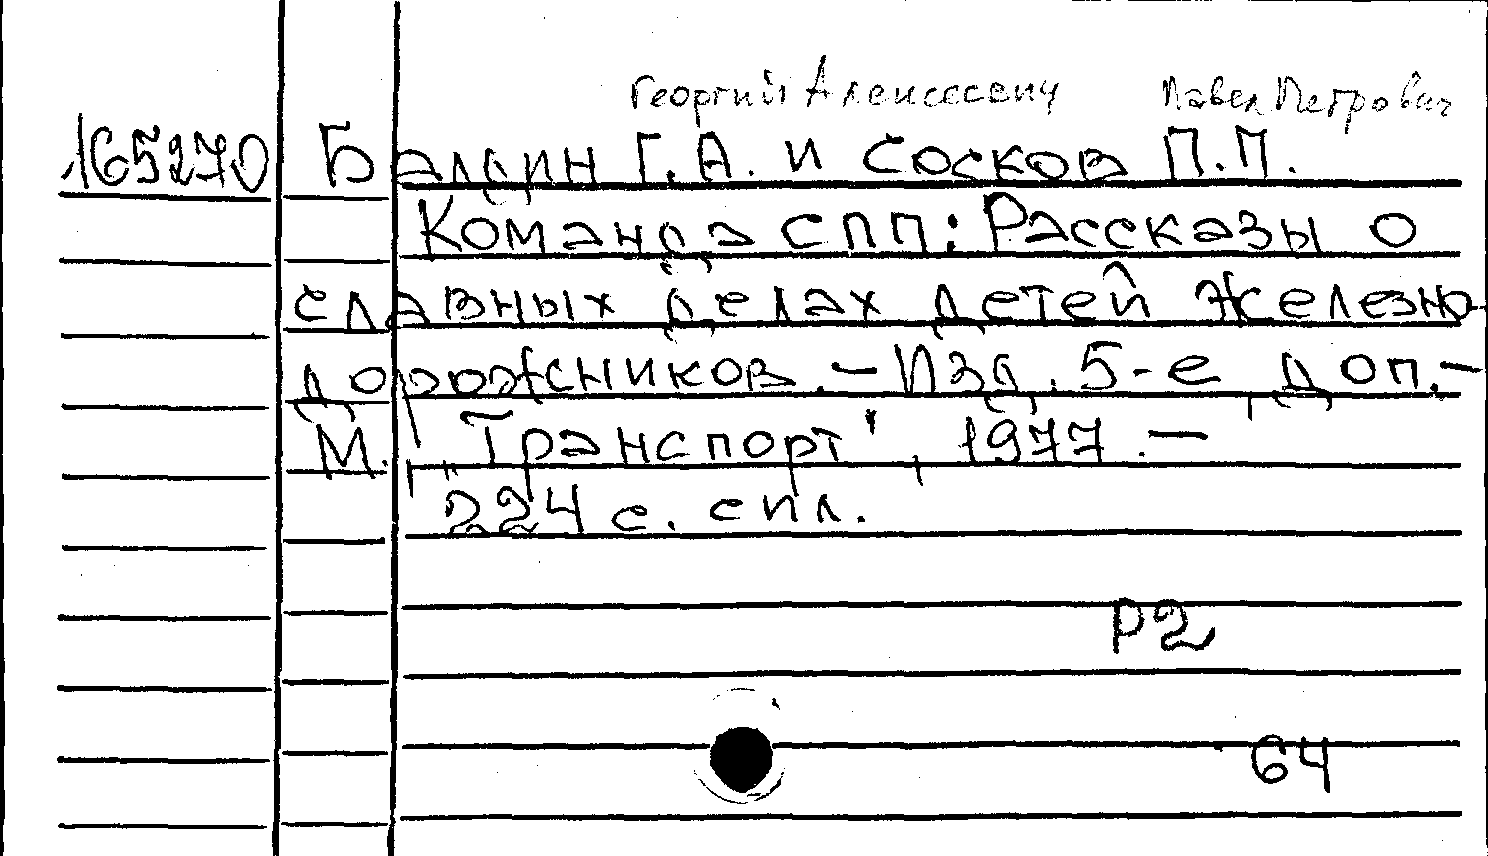 Георгий Алексеевич Павел Петрович
165270 Балдин Г.А. и Сосков П.П.
Команда СПП: Рассказы о
славных делах детей железно
дорожников. - Изд. 5-е, доп.-
М., "Транспорт", 1977. —
224 с. с ил.
Р2
64